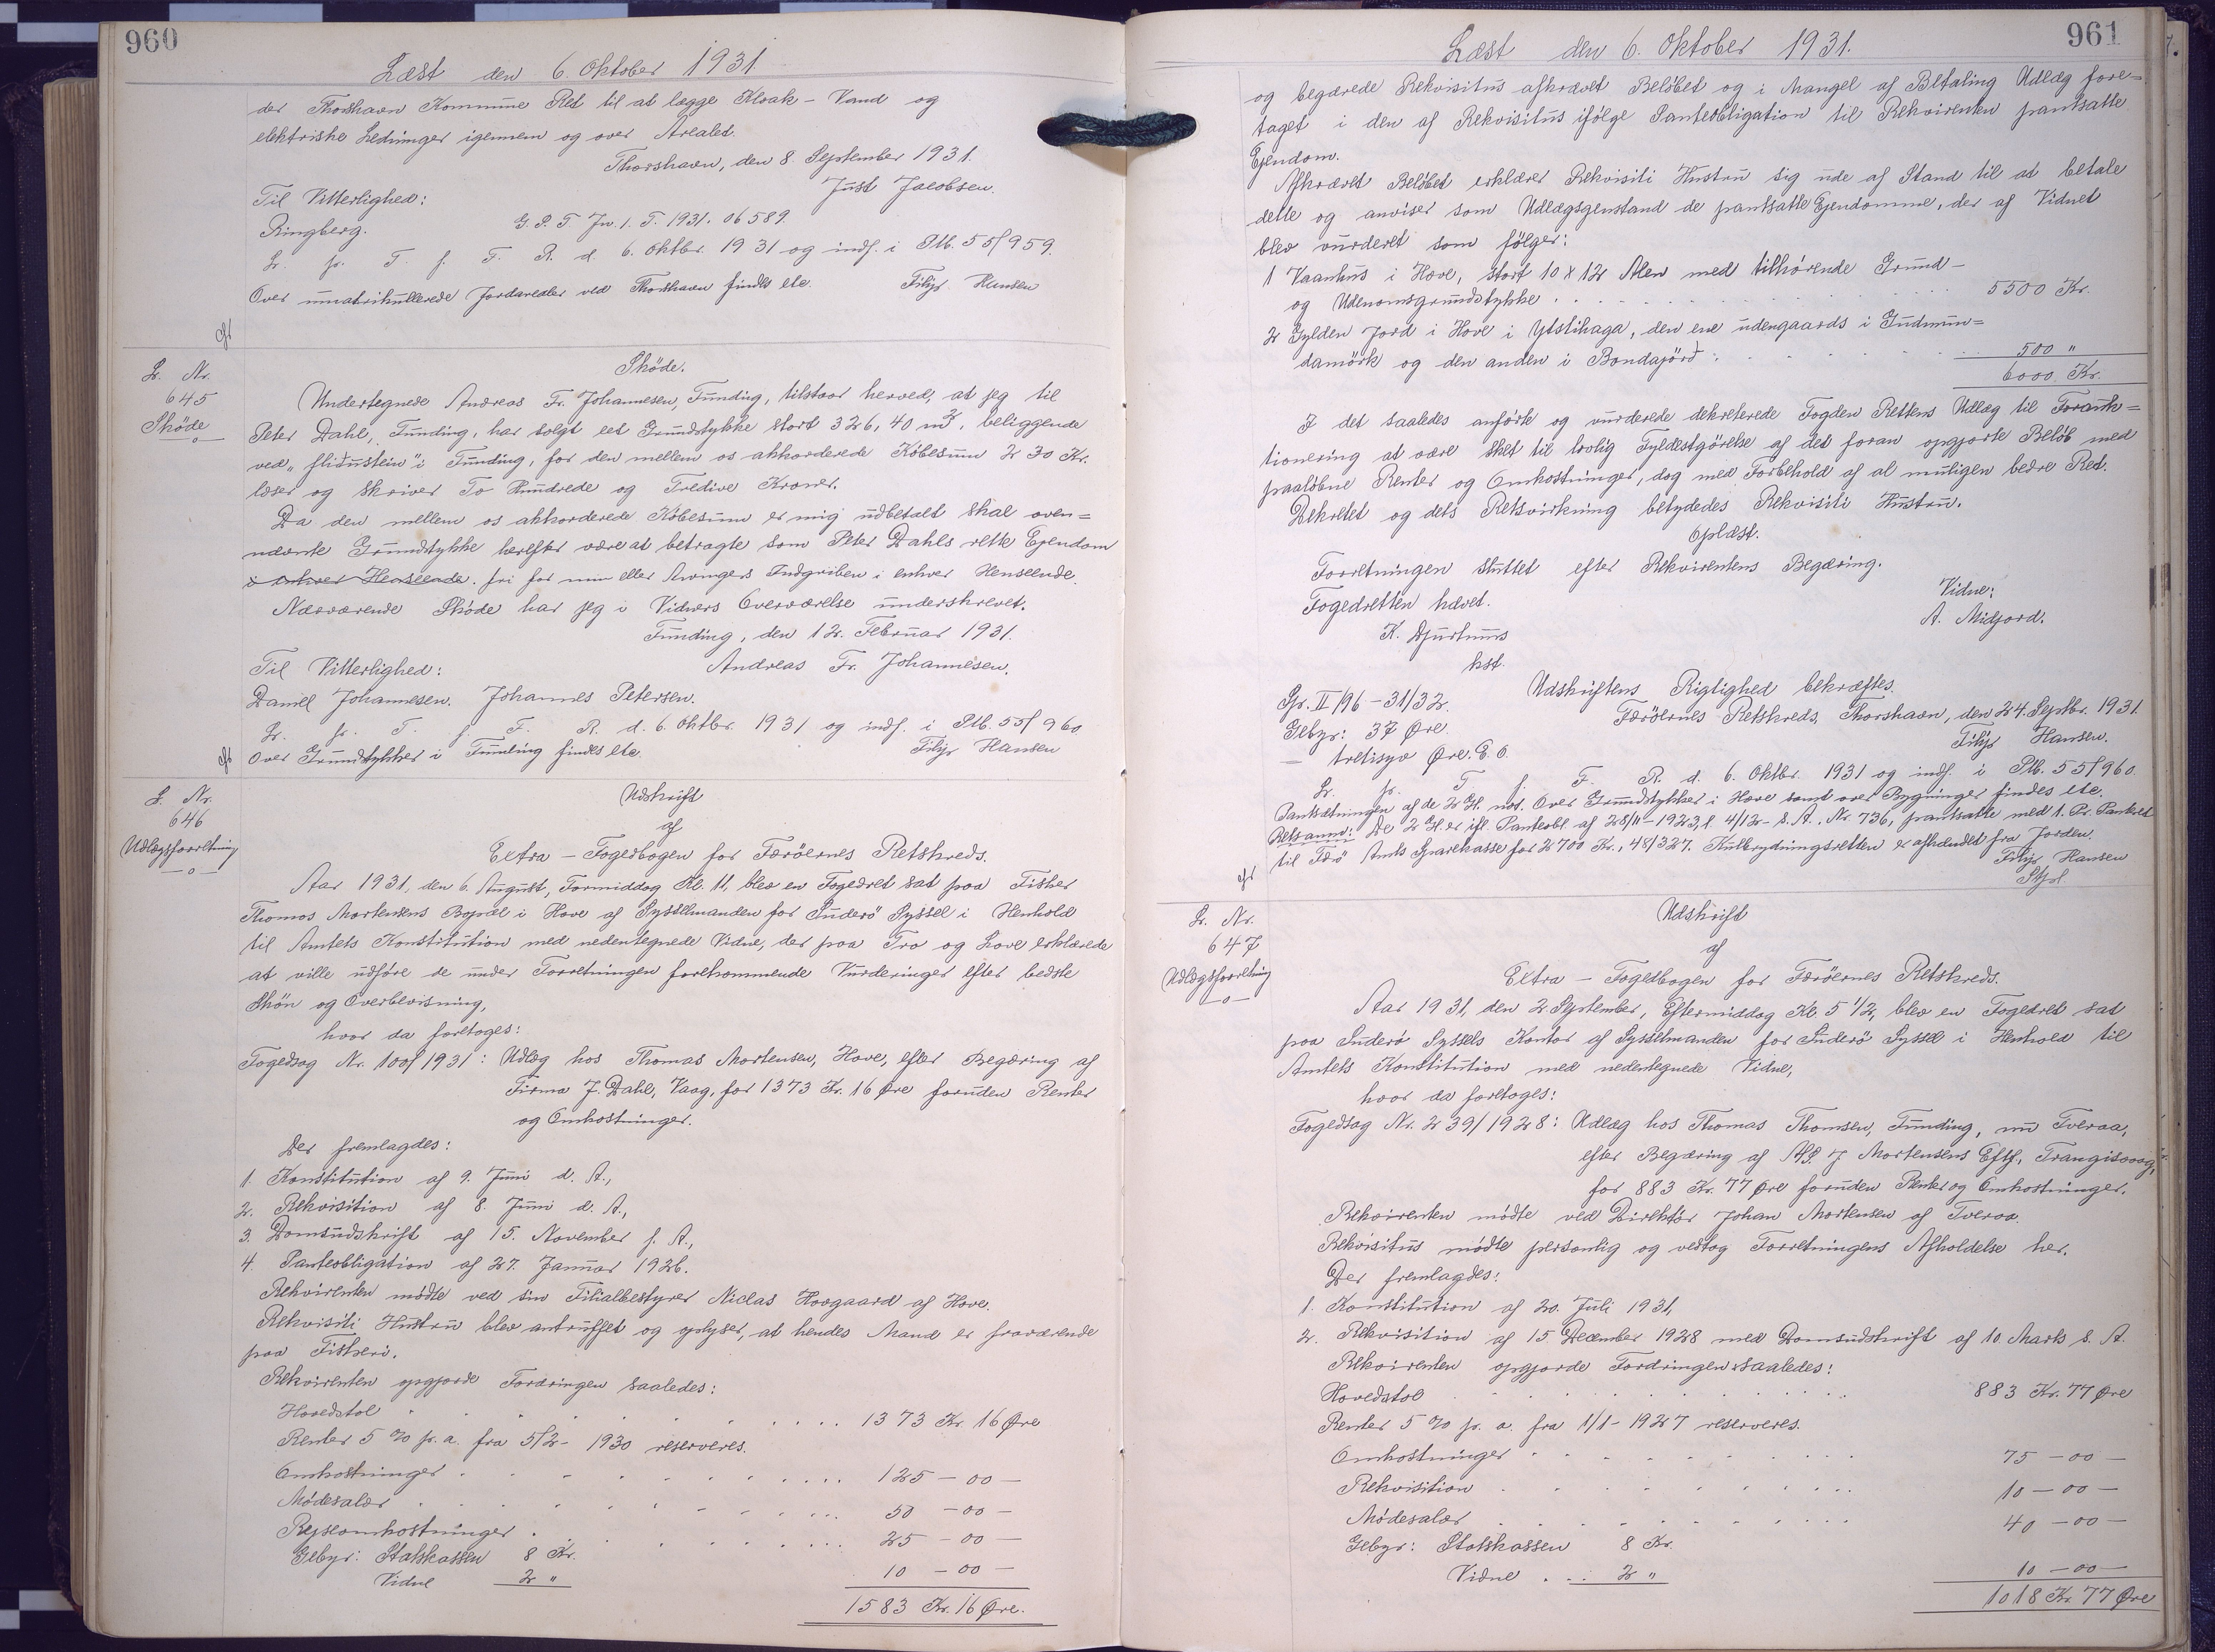 960
Læst den 6. Oktober 1931
der Thorshavn Kommune Ret til at lægge Kloak- Vand og
elektriske Ledninger igennem og over Arealet.
Thorshavn, den 8 September 1931.
Just Jacobsen.
Til Vitterlighed:
Ringberg.
G. P. T. Jn. 1. T. 1931. 06589
L. fr. T. f. F. R. d. 6. Oktbr. 1931 og indf. i Ptb. 55/959.
Over umatrikullerede Jordarealer ved Thorshavn findes etc.
Filip Hansen
L. Nr.
645
Skøde
Skøde.
Undertegnede Andreas Fr. Johannesen, Funding, tilstaar herved, at jeg til
Peter Dahl, Funding, har solgt eet Grundstykke stort 326,40 m², beliggende
ved „fliðustein" i Funding, for den mellem os akkorderede Købesum 230 Kr.
læser og skriver To Hundrede og Tredive Kroner.
Da den mellem os akkorderede Købesum er mig udbetalt skal oven=
nævnte Grundstykke herefter være at betragte som Peter Dahls rette Ejendom
i enhver Henseende. fri for min eller Arvingers Indgriben i enhver Henseende.
Nærværende Skøde har jeg i Vidners Overværelse underskrevet.
Funding, den 12. Februar 1931.
Andreas Fr. Johannesen.
Til Vitterlighed:
Daniel Johannesen. Johannes Petersen.
L. fr. T. f. F. R. d. 6. Oktbr. 1931 og indf. i Ptb. 55/960
Over Grundstykker i Funding findes etc
Filip Hansen
L. Nr.
646
Udlægsforretning
Udskrift
af
Extra - Fogedbogen for Færøernes Retskreds.
Aar 1931, den 6. August, Formiddag Kl. 11, blev en Fogedret sat paa Fisker
Thomas Mortensens Bopæl i Hove af Sysselmanden for Suderø Syssel i Henhold
til Amtets Konstitution med nedentegnede Vidne, der paa Tro og Love erklærede
at ville udføre de under Forretningen forekommende Vurderinger efter bedste
Skøn og Overbevisning,
hvor da foretoges:
Fogedsag Nr. 100/1931: Udlæg hos Thomas Mortensen, Hove, efter Begæring af
Firma J. Dahl, Vaag, for 1373 Kr. 16 Øre foruden Renter
og Omkostninger.
Der fremlagdes:
1. Konstitution af 9. Juni d. A.,
2. Rekvisition af 8. Juni d. A.,
3. Domsudskrift af 15. November f. A.,
4. Panteobligation af 27. Januar 1926.
Rekvirenten mødte ved sin Filialbestyrer Niclas Hovgaard af Hove.
Rekvisiti Hustru blev antruffet og oplyser, at hendes Mand er fraværende
paa Fiskeri.
Rekvirenten opgjorde Fordringen saaledes:
Hovedstol . . . . 1373 Kr. 16 Øre
Renter 5 % p. a. fra 5/2- 1930 reserveres.
Omkostninger . . . . 125 - 00 -
Mødesalær . . . . 50 - 00 -
Rejseomkostninger . . . . 25 - 00 -
Gebyr: Statskassen 8 Kr.
Vidne 2 " 10 - 00 -
1583 Kr. 16 Øre.
961
Læst den 6. Oktober 1931.
og begærede Rekvisitus afkrævet Beløbet og i Mangel af Betaling Udlæg fore=
taget i den af Rekvisitus ifølge Panteobligation til Rekvirenten pantsatte
Ejendom.
Afkrævet Beløbet erklærer Rekvisiti Hustru sig ude af Stand til at betale
dette og anviser som Udlægsgenstand de pantsatte Ejendomme, der af Vidnet
blev vurderet som følger:
1 Vaanhus i Hove, stort 10 x 12 Alen med tilhørende Grund-
og Udenomsgrundstykke . . . . 5500 Kr.
2 Gylden Jord i Hove i Ytstihaga, den ene udengaards i Gudmun=
damörk og den anden i Bondajörð . . . . 500 "
6000 Kr.
I det saaledes anførte og vurderede dekreterede Fogden Rettens Udlæg til Forank=
tionering at være sket til lovlig Fyldestgørelse af det foran opgjorte Beløb med
paaløbne Renter og Omkostninger, dog med Forbehold af al muligen bedre Ret.
Dekretet og dets Retsvirkning betydedes Rekvisiti Hustru.
Oplæst.
Forretningen sluttet efter Rekvirentens Begæring.
Fogedretten hævet.
K. Djurhuus
kst.
Vidne:
A. Midjord.
Udskriftens Rigtighed bekræftes.
Færøernes Retskreds, Thorshavn, den 24. Septbr. 1931
Filip Hansen.
Gr. II/96 - 31/32.
Gebyr: 37 Øre.
- tretisyv Øre. G. O.
L. fr. T. f. F. R. d. 6. Oktbr. 1931 og indf. i Ptb. 55/960.
Pantsætningen af de 2 Gl. not. Over Grundstykker i Hove samt over Bygninger findes etc.
Retsanm: De 2 Gl. er ifl. Panteobl. af 28/11-1923, l. 4/12- s. A. Nr. 736, pantsatte med 1. Pr. Panteret
til Færø Amts Sparekasse for 2700 Kr., 48/327. Kulbrydningsretten er afhændet fra Jorden.
Filip Hansen
L. Nr.
647
Udlægsforretning
Udskrift
af
Extra - Fogedbogen for Færøernes Retskreds.
Aar 1931, den 2. September, Eftermiddag Kl. 5 1/2, blev en Fogedret sat
paa Suderø Syssels Kontor af Sysselmanden for Suderø Syssel i Henhold til
Amtets Konstitution med nedentegnede Vidne,
hvor da foretoges:
Fogedsag Nr. 239/1928: Udlæg hos Thomas Thomsen, Funding, nu Tveraa,
efter Begæring af A/S. J Mortensens Eftf., Trangisvaag,
for 883 Kr. 77 Øre foruden Renter og Omkostninger.
Rekvirenten mødte ved Direktør Johan Mortensen af Tveraa.
Rekvisitus mødte personlig og vedtog Forretningens Afholdelse her.
Der fremlagdes:
1. Konstitution af 20. Juli 1931,
2. Rekvisition af 15 December 1928 med Domsudskrift af 10 Marts s. A.
Rekvirenten opgjorde Fordringen saaledes:
Hovedstol . . . . 883 Kr. 77 Øre
Renter 5 % p. a. fra 1/1- 1927 reserveres.
Omkostninger . . . . 75 - 00 -
Rekvisition . . . . 10 - 00 -
Mødesalær . . . . 40 - 00 -
Gebyr: Statskassen 8 Kr.
Vidne . . . 2 " 10 - 00 -
1018 Kr 77 Øre